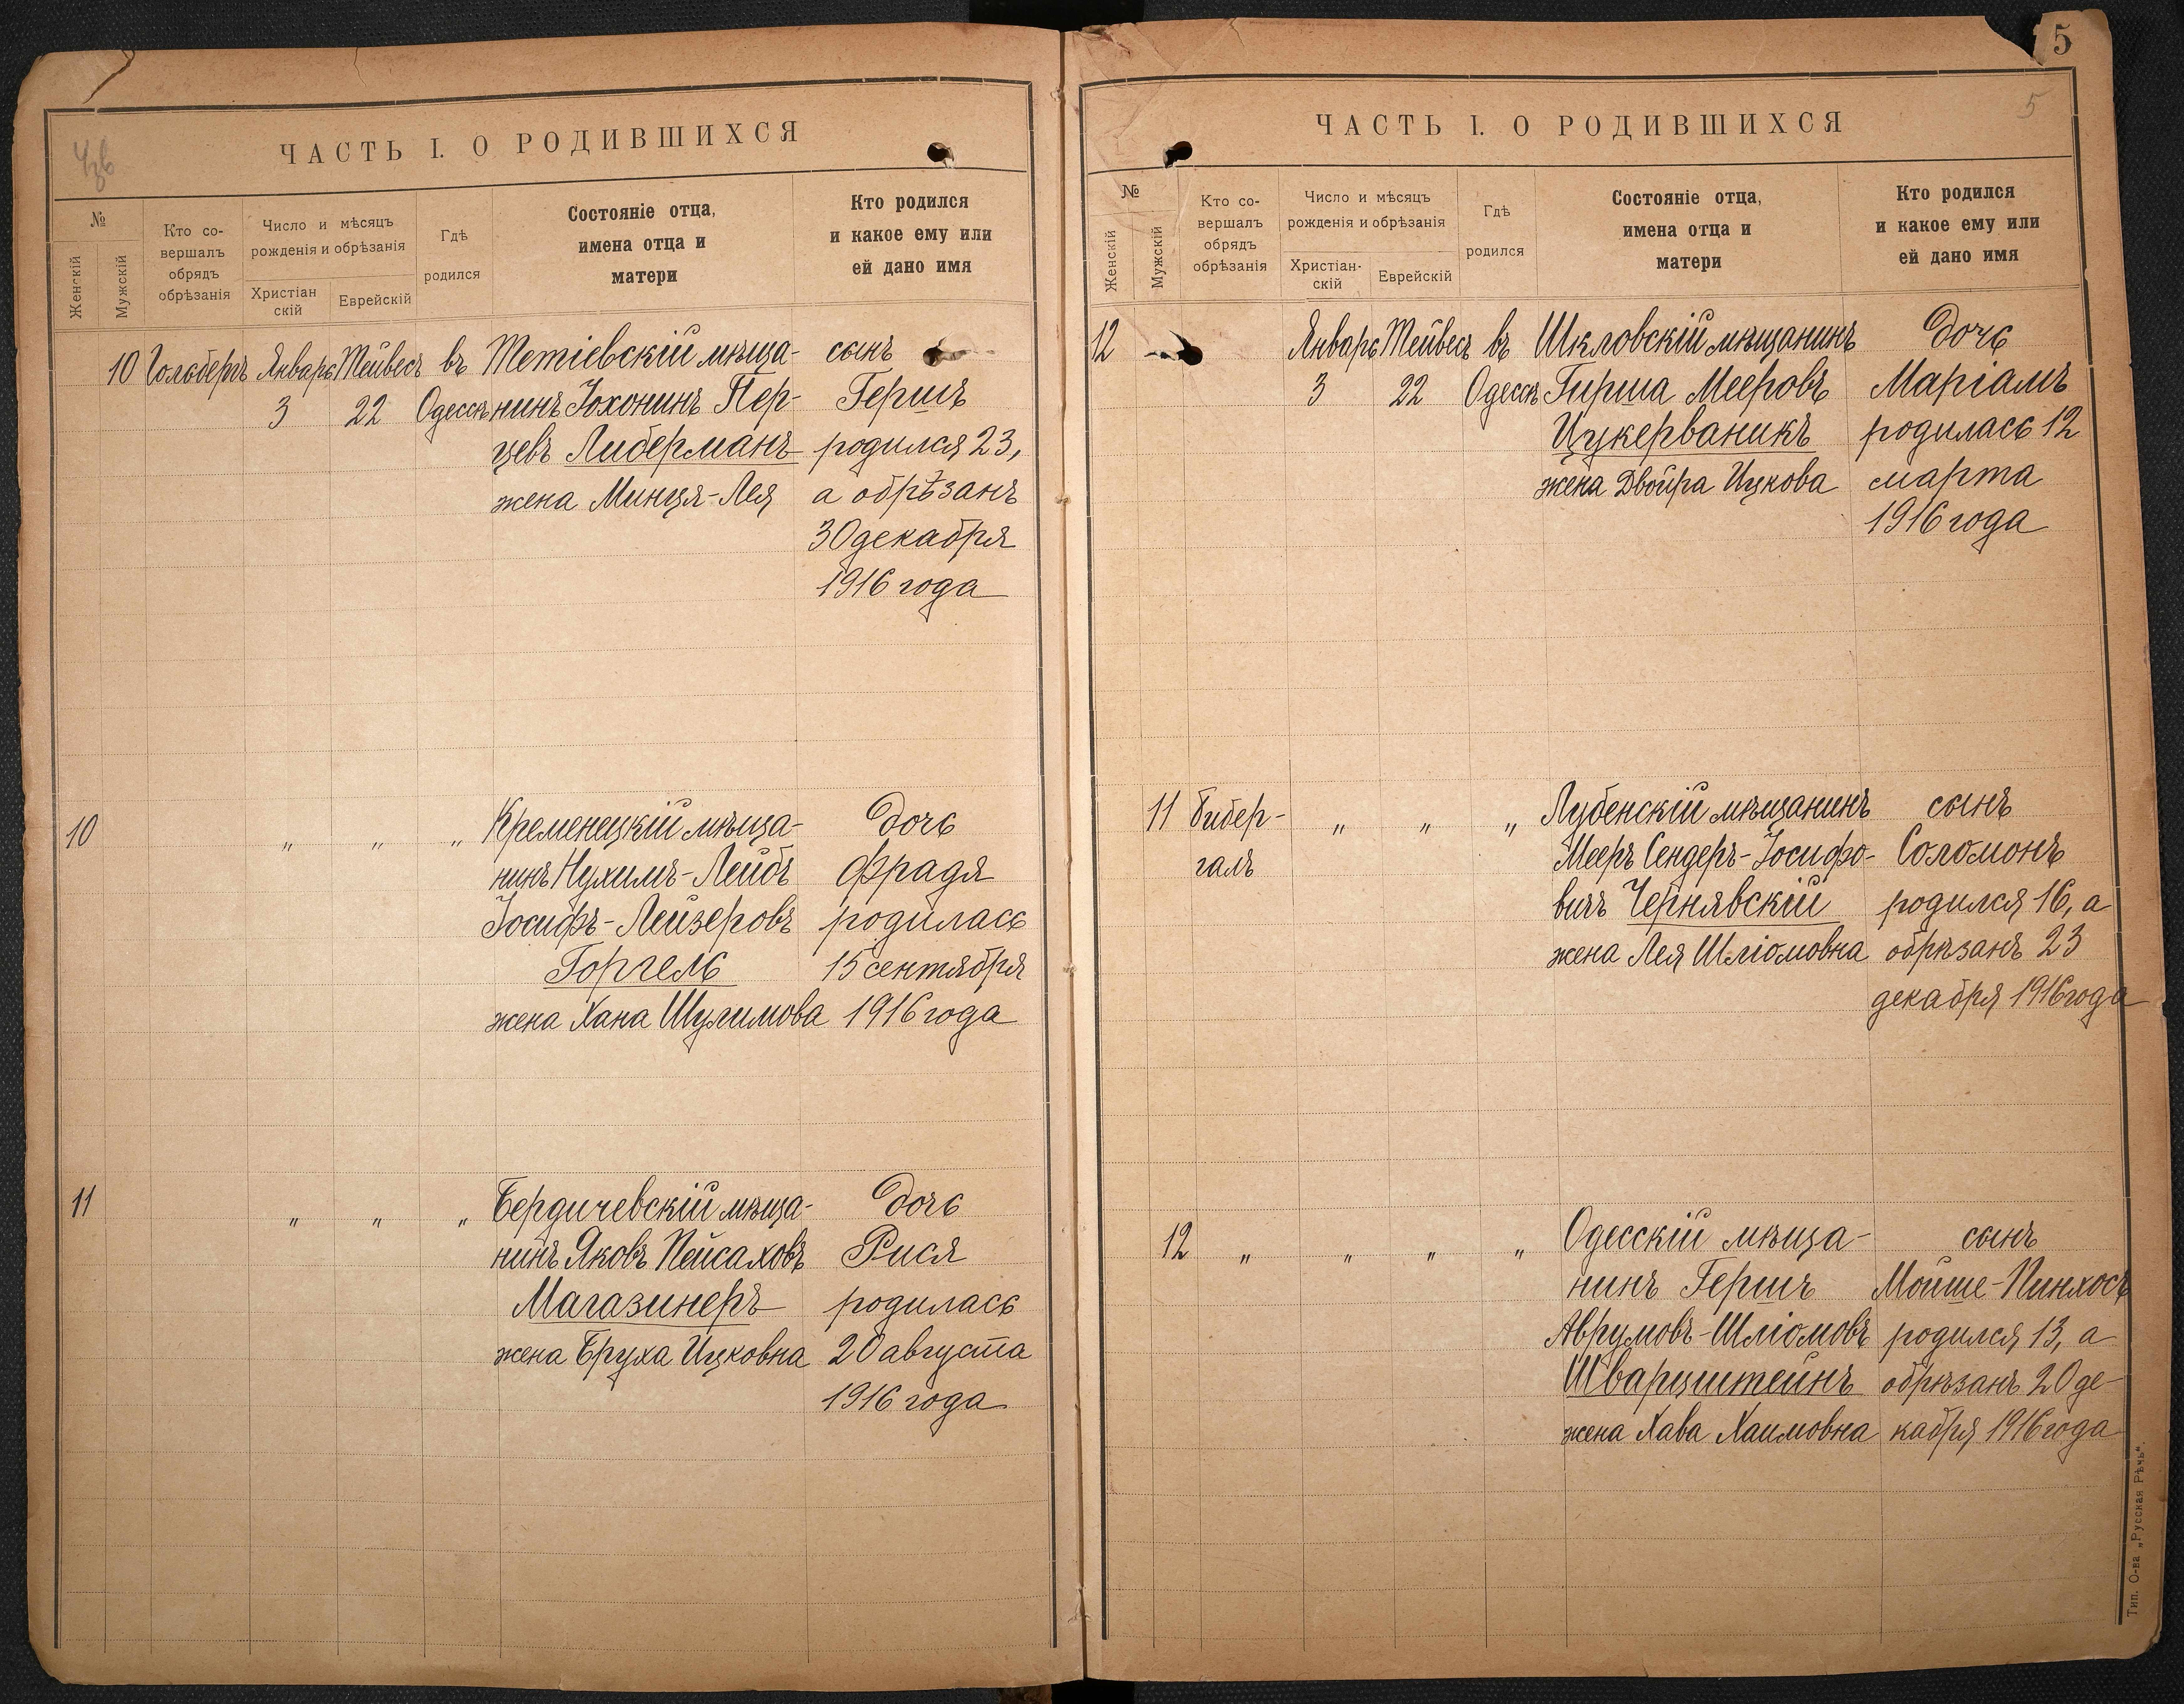 ЧАСТЬ I. О РОДИВШИХСЯ
№
Женскій
Мужскій
Кто со-
вершалъ
обрядъ
обрѣзанія
Число и мѣсяцъ
рожденія и обрѣзанія
Христіан
скій
Еврейскій
Гдѣ
родился
Состояніе отца,
имена отца и
матери
Кто родился
и какое ему или
ей дано имя
10 Гольбергъ Январь Тейвесъ въ Тетіевскій мѣща- сынъ
3 22 Одессѣ нинъ Іохонинъ Пер- Гершъ
цевъ Либерманъ родился 23,
жена Минця-Лея а обрѣзанъ
30 декабря
1916 года
10 " " " Кременецкій мѣща- дочь
нинъ Нухимъ-Лейбъ Фрадя
Іосифъ-Лейзеровъ родилась
Горгель 15 сентября
жена Хана Шулимова 1916 года
11 " " " Бердичевскій мѣща- дочь
нинъ Яковъ Пейсаховъ Рися
Магазинеръ родилась
жена Бруха Ицковна 20 августа
1916 года
5
5
ЧАСТЬ I. О РОДИВШИХСЯ
№
Женскій
Мужскій
Кто со-
вершалъ
обрядъ
обрѣзанія
Число и мѣсяцъ
рожденія и обрѣзанія
Христіан-
скій
Еврейскій
Гдѣ
родился
Состояніе отца,
имена отца и
матери
Кто родился
и какое ему или
ей дано имя
12 Январь Тейвесъ въ Шкловскій мѣщанинъ дочь
3 22 Одессѣ Гирша Мееровъ Маріамъ
Цукерваникъ родилась 12
жена Двойра Ицкова марта
1916 года
11 Бибер- " " " Лубенскій мѣщанинъ сынъ
галь Мееръ Сендеръ-Іосифо- Соломонъ
вичъ Чернявскій родился 16, а
жена Лея Шліомовна обрѣзанъ 23
декабря 1916 года
12 " " " " Одесскій мѣща- сынъ
нинъ Гершъ Мойше-Пинхосъ
Аврумовъ-Шліомовъ родился 13, а
Шварцштейнъ обрѣзанъ 20 де-
жена Хава Хаимовна кабря 1916 года
Тип. О-ва „Русская Рѣчь".